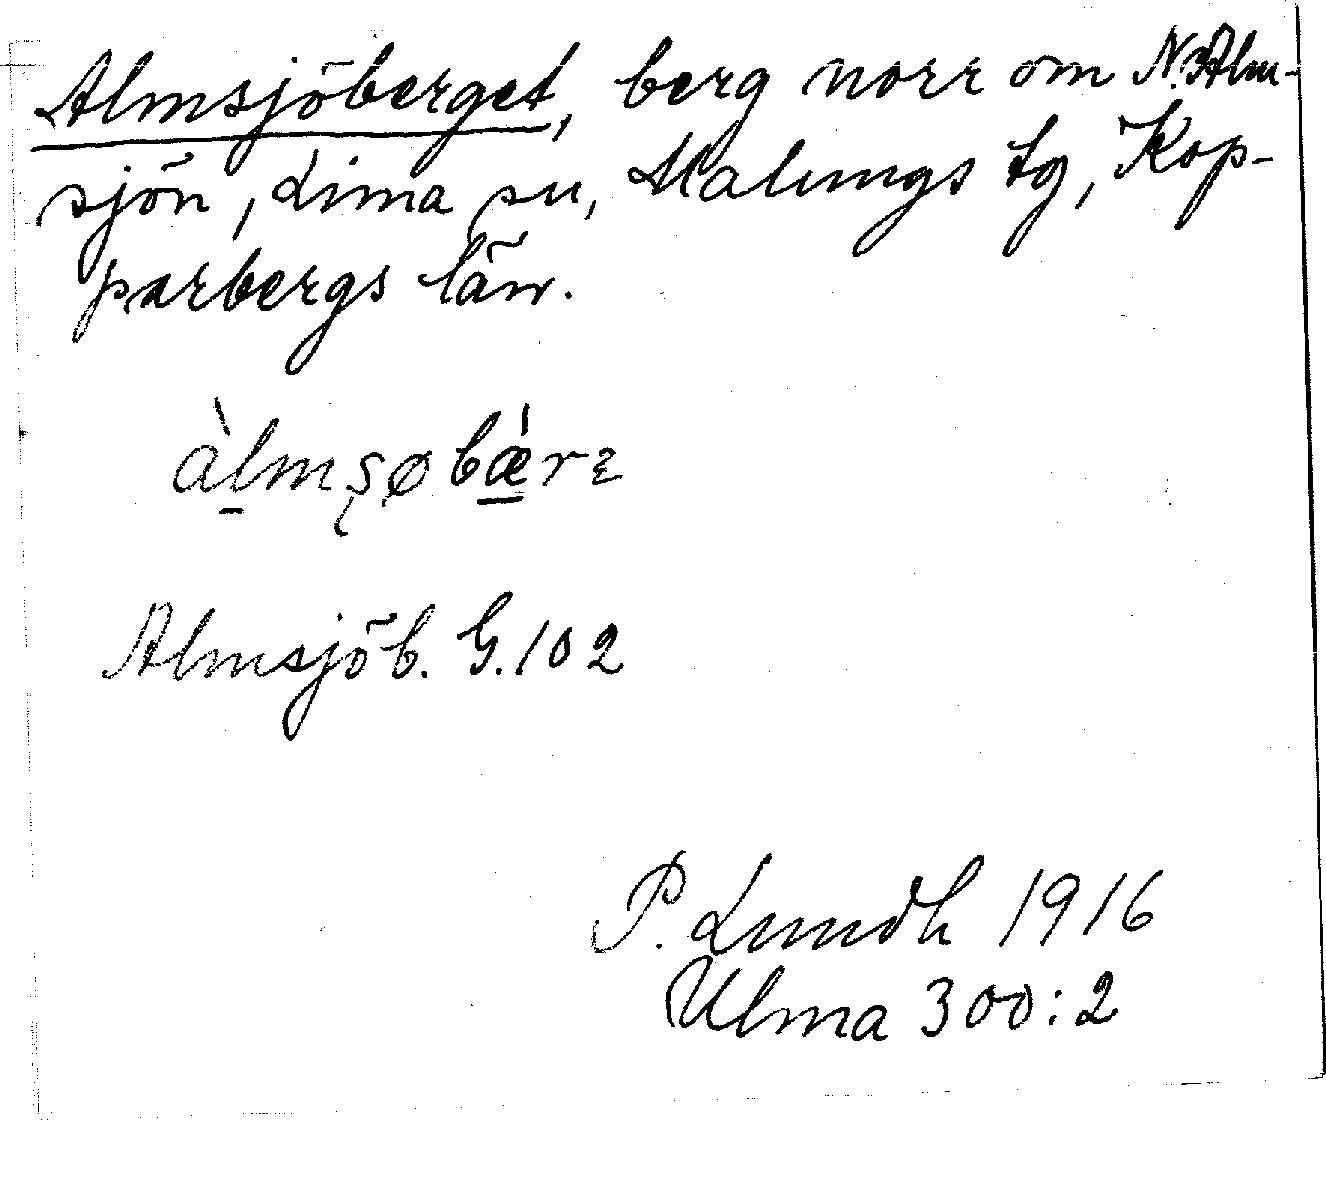 Almsjöberget, berg norr om N. Alm-
sjön, Lima sn, Malungs tg, Kop-
parbergs län.
àl̠mşøbæ̠̀rε
Almsjöb. G. 102
P. Lundh 1916
Ulma 300:2